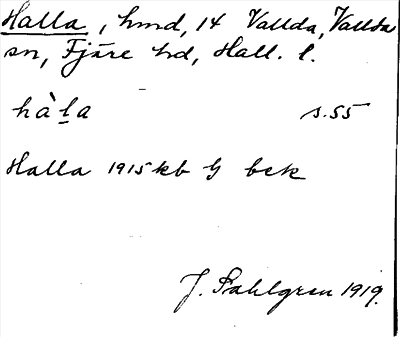 Halla, hmd, 14 Vallda, Vallda
sn, Fjäre hd, Hall. l.
hàl̲a s. 55
Halla 1915 kb G bek
J. Sahlgren 1919.